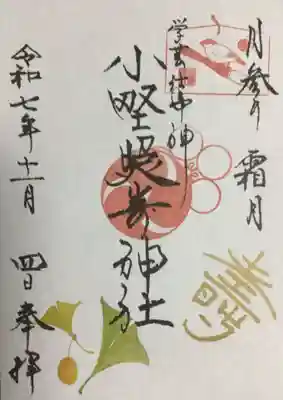 月参り 霜月
学芸の神
小野照崎神社
令和七年十一月 四日 奉拝